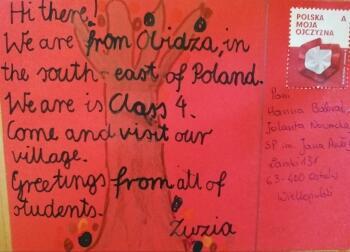 Hi there!
We are from Obidza, in
the south-east of Poland.
We are is Class 4.
Come and visit our
village.
Greetings from all of
students.
Zuzia
POLSKA
MOJA
OJCZYZNA
A
Pani
Hanna
Jolanta
SP im. Jana
63-400 Ostrów
Wielkopolski